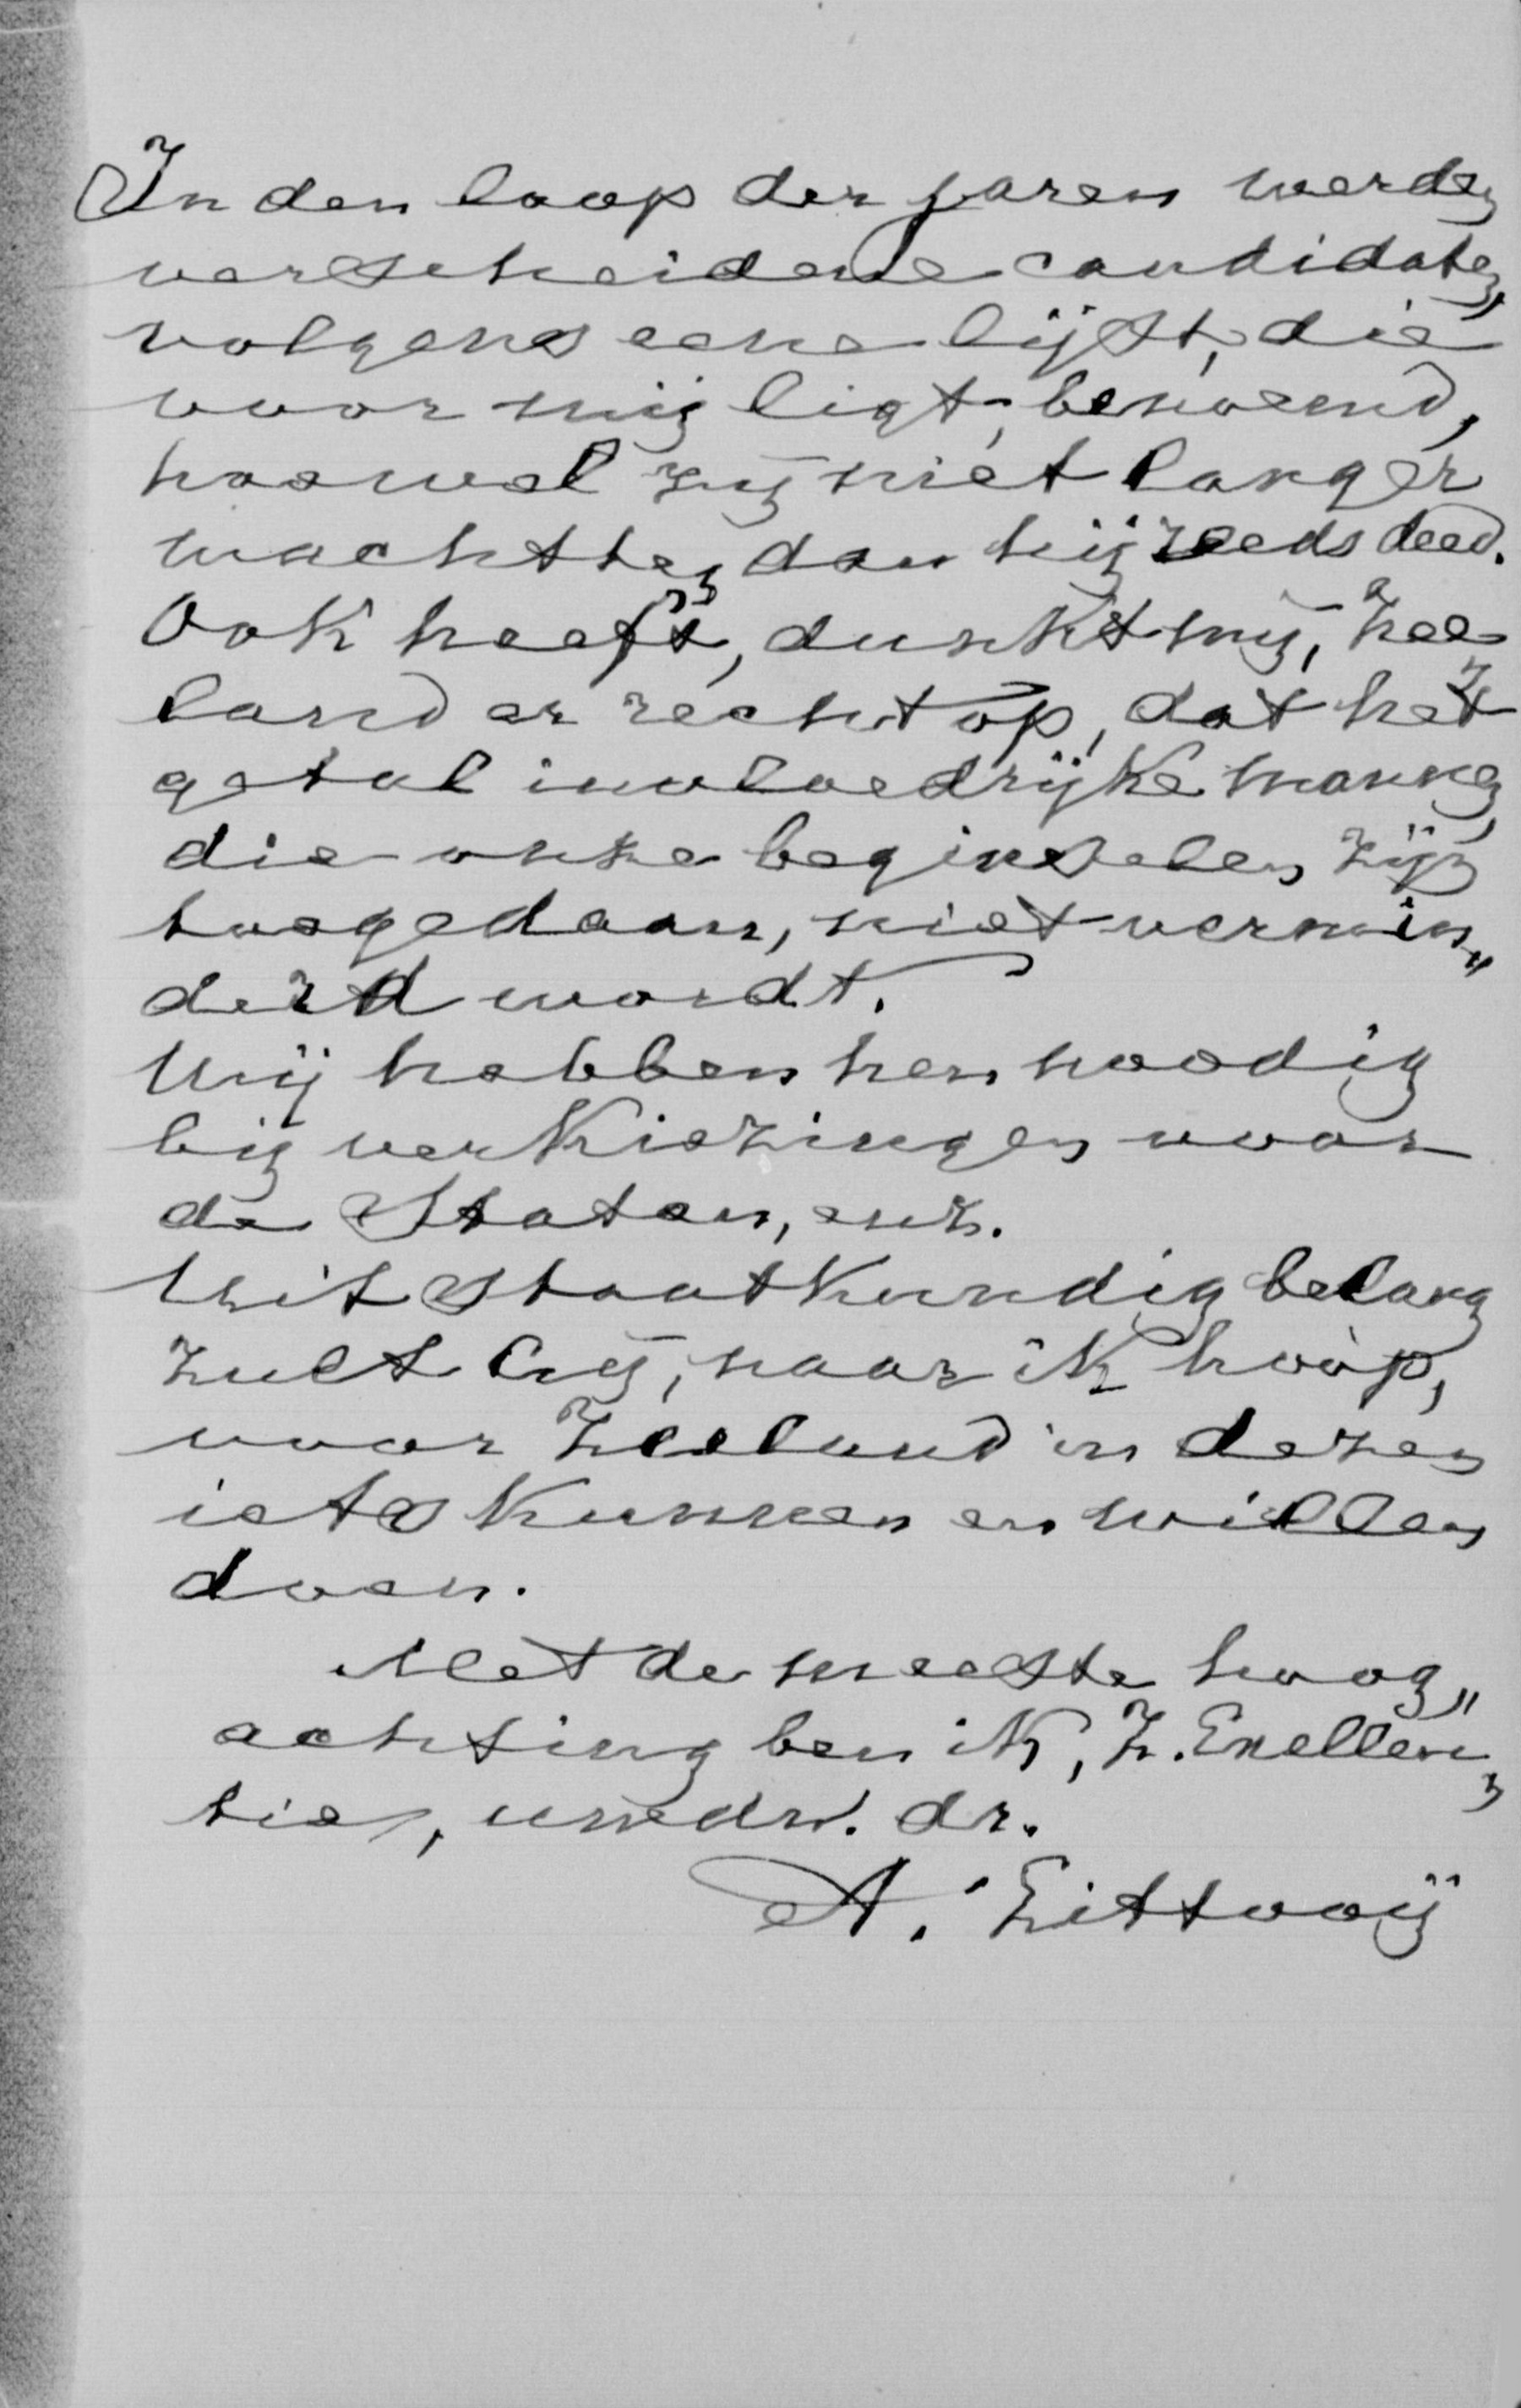 In den loop der jaren werden
verscheidene candidaten,
volgens eene lijst, die
voor mij ligt, benoemd,
hoewel zij niet langer
wachtten dan hij reeds deed.
Ook heeft, dunkt mij, Zee-
land er recht op, dat het
getal invloedrijke mannen,
die onze beginselen zijn
toegedaan, niet vermin„
derd wordt.
Wij hebben hen noodig
bij verkiezingen voor
de Staten, enz.
Uit staatkundig belang
zult Gij, naar ik hoop,
voor Zeeland in dezen
iets kunnen en willen
doen.
Met de meeste hoog„
achting ben ik, Z. Exellen„
tie, uwedw. dr.
A. Littooij